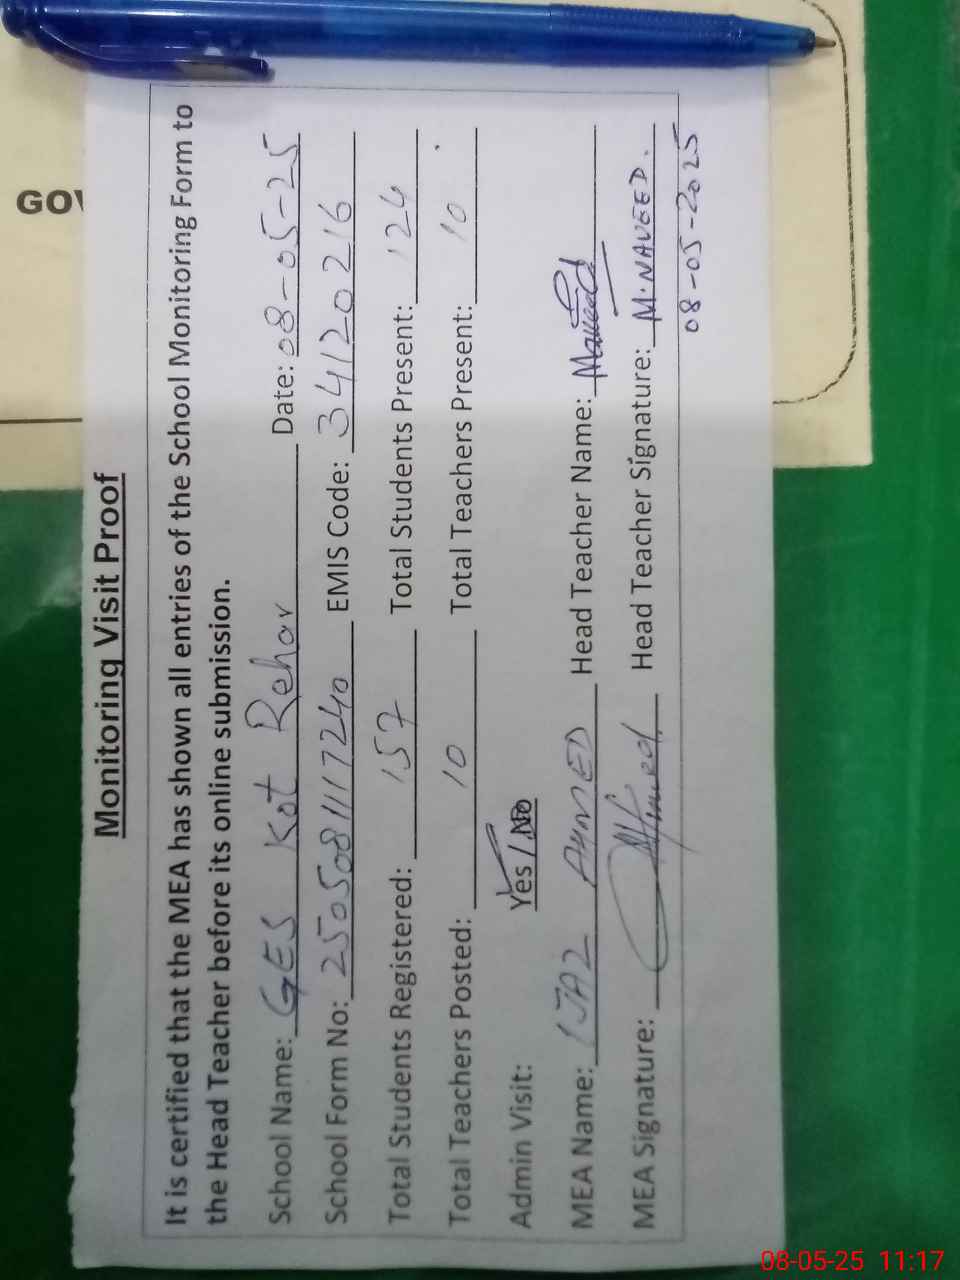 GOV
Monitoring Visit Proof
It is certified that the MEA has shown all entries of the School Monitoring Form to
the Head Teacher before its online submission.
School Name: GES Kot Rehar Date: 08-05-25
School Form No: 2505081117240 EMIS Code: 34120216
Total Students Registered: 157 Total Students Present: 124
Total Teachers Posted: 10 Total Teachers Present: 10
Admin Visit: Yes / No
MEA Name: IJAZ AHMED Head Teacher Name: Naveed
MEA Signature: Ahmed Head Teacher Signature: M. NAVEED.
08-05-2025
08-05-25 11:17